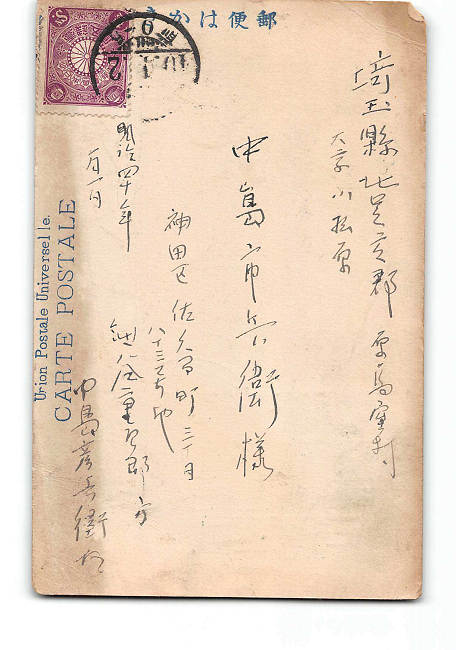 郵便はかき
埼玉縣北足立郡原馬室村
大字小松原
中島市兵衛様
神田区佐久間町三丁目
八十三
重次郎方
中島彦兵衛
明治四十年
一月一日
Union Postale Universelle.
CARTE POSTALE